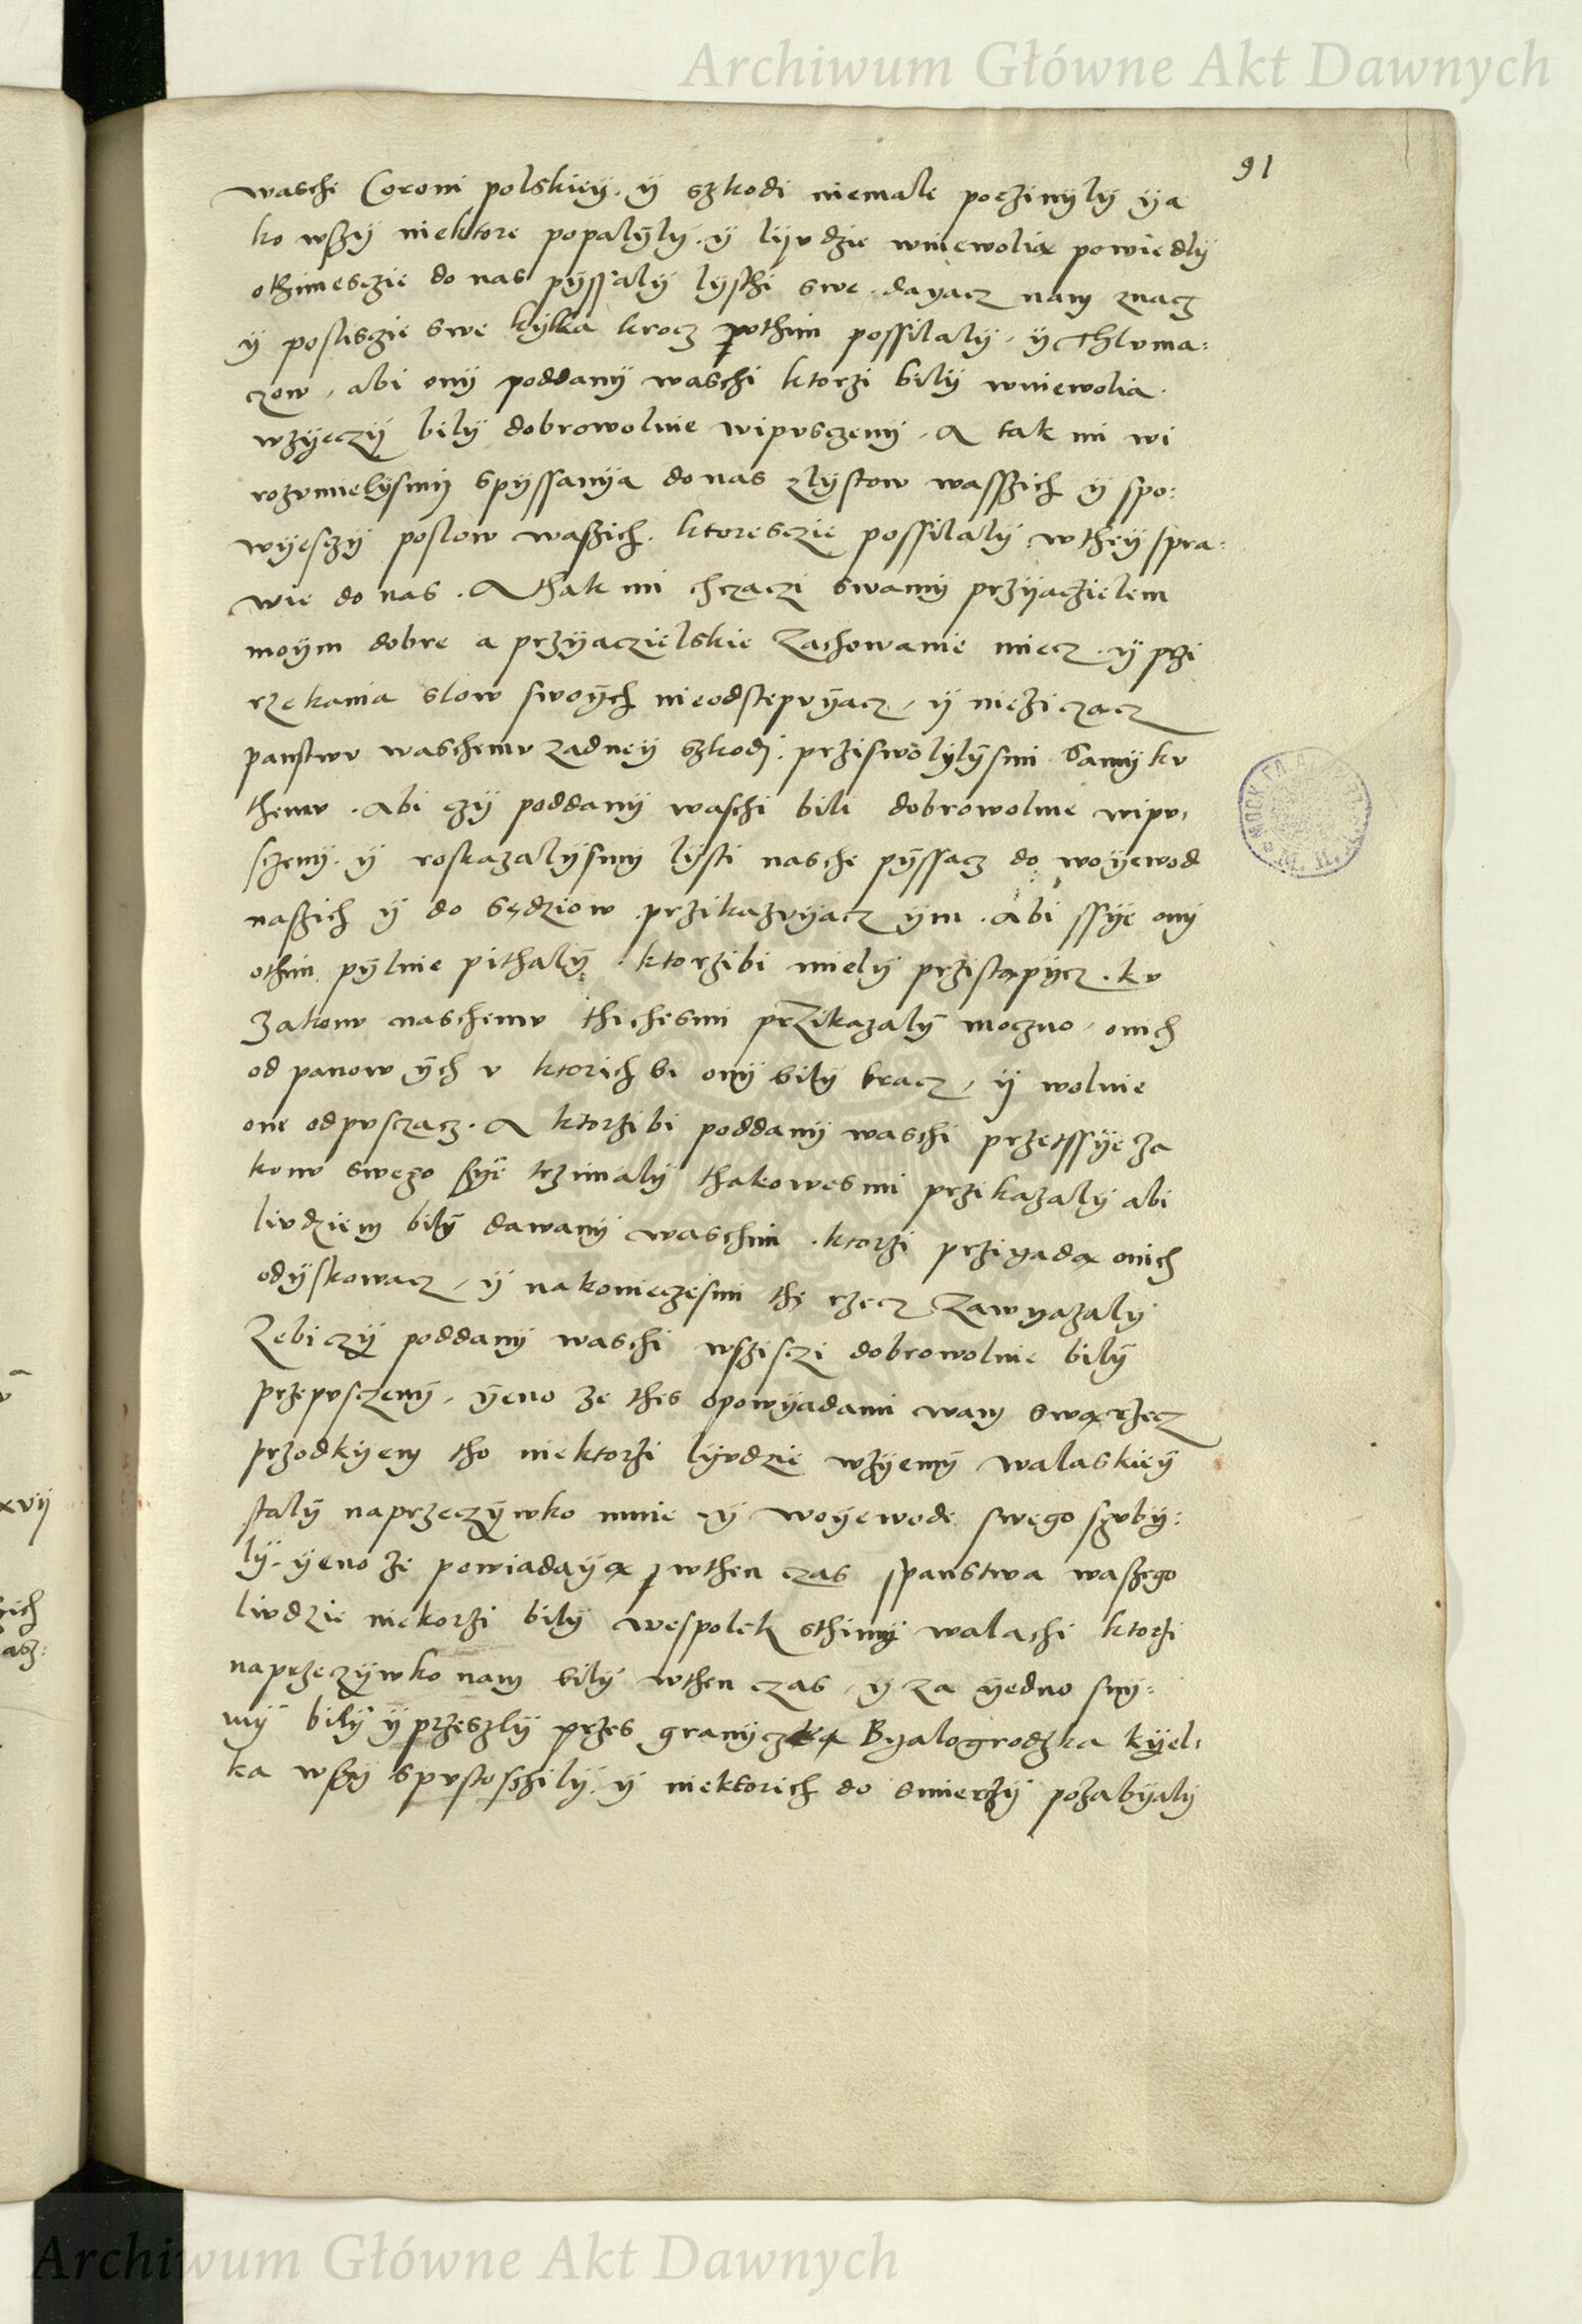 Archiwum Główne Akt Dawnych
91
waschi Coroni polskiey. ÿ szkodi niemale poczinÿlÿ ÿa
ko wszÿ niektore popalÿlÿ. ÿ lÿvdzie wniewolią powiedlÿ
othimesczie do nas pÿssalÿ lÿsthi swe. dayacz nam znacz
ÿ poslisczie swe kÿlka krocz wthim possilalÿ, ÿ Thlvma:
czow, abi onÿ poddanÿ waschi ktorzi bilÿ wniewolia.
wzÿeczÿ bilÿ dobrowolnie wipvsczenÿ, A tak mi wi
rozvmielÿsmÿ spÿssanÿa do nas zlÿstow wasszich ÿ spo:
wÿesczÿ poslow waszich. ktoresczie possilalÿ wtheÿ spra:
wie do nas. A thak mi chczaczi swamÿ przÿaczielem
moÿm dobre a przÿaczielskie zachowanie miecz. ÿ przi
rzekania slow swoÿch nieodstepvÿacz, ÿ nieziczacz
panstwv waschemv zadneÿ szkodi. prziswolÿlÿsmi samÿ kv
themv. Abi czÿ poddanÿ waschi bili dobrowolnie wipv,
sczenÿ. ÿ roskazalÿsmÿ lÿsti nasche pÿssacz do woÿewod
naszich ÿ do sędziow. przikazvÿacz ÿm. Abi ssÿe onÿ
othim pÿlnie pithalÿ. ktorzibi mielÿ przistąpÿcz. kv
zakonv naschemv thichesmi przikazalÿ moczno, onich
od panow ÿch v ktorich bi onÿ bilÿ bracz, ÿ wolnie
one odpvsczacz. A ktorzibi poddanÿ waschi przetssÿe za
konv swego szÿe trzimalÿ thakowesmi przikazalÿ abi
livdziem bilÿ dawanÿ waschim. ktorzi prziyadą onich
odÿskowacz, ÿ nakonieczesmi thę rzecz zawÿazalÿ
Zebiczÿ poddanÿ waschi wszisczi dobrowolnie bilÿ
przepvsczenÿ, ÿeno ze thes opowÿadami wam swą rzecz
przodkÿem tho niektorzi lÿvdzie wzÿemÿ walaskieÿ
stalÿ naprzeczÿwko mnie. ÿ woÿewode swego szvbÿ:
lÿ. ÿeno ze powiadaÿą wthen czas spanstwa waszego
livdzie niekorzi bilÿ wespolek sthimÿ walachi ktorzi
naprzeczÿwko nam bilÿ wthen czas, ÿ za ÿedno snÿ:
mÿ bilÿ ÿ przeszlÿ przes granÿczką Bÿalogrodzka kÿel,
ka wszÿ spvstoszilÿ. ÿ niektorich do smierzÿ pozabÿalÿ
Archiwum Główne Akt Dawnych